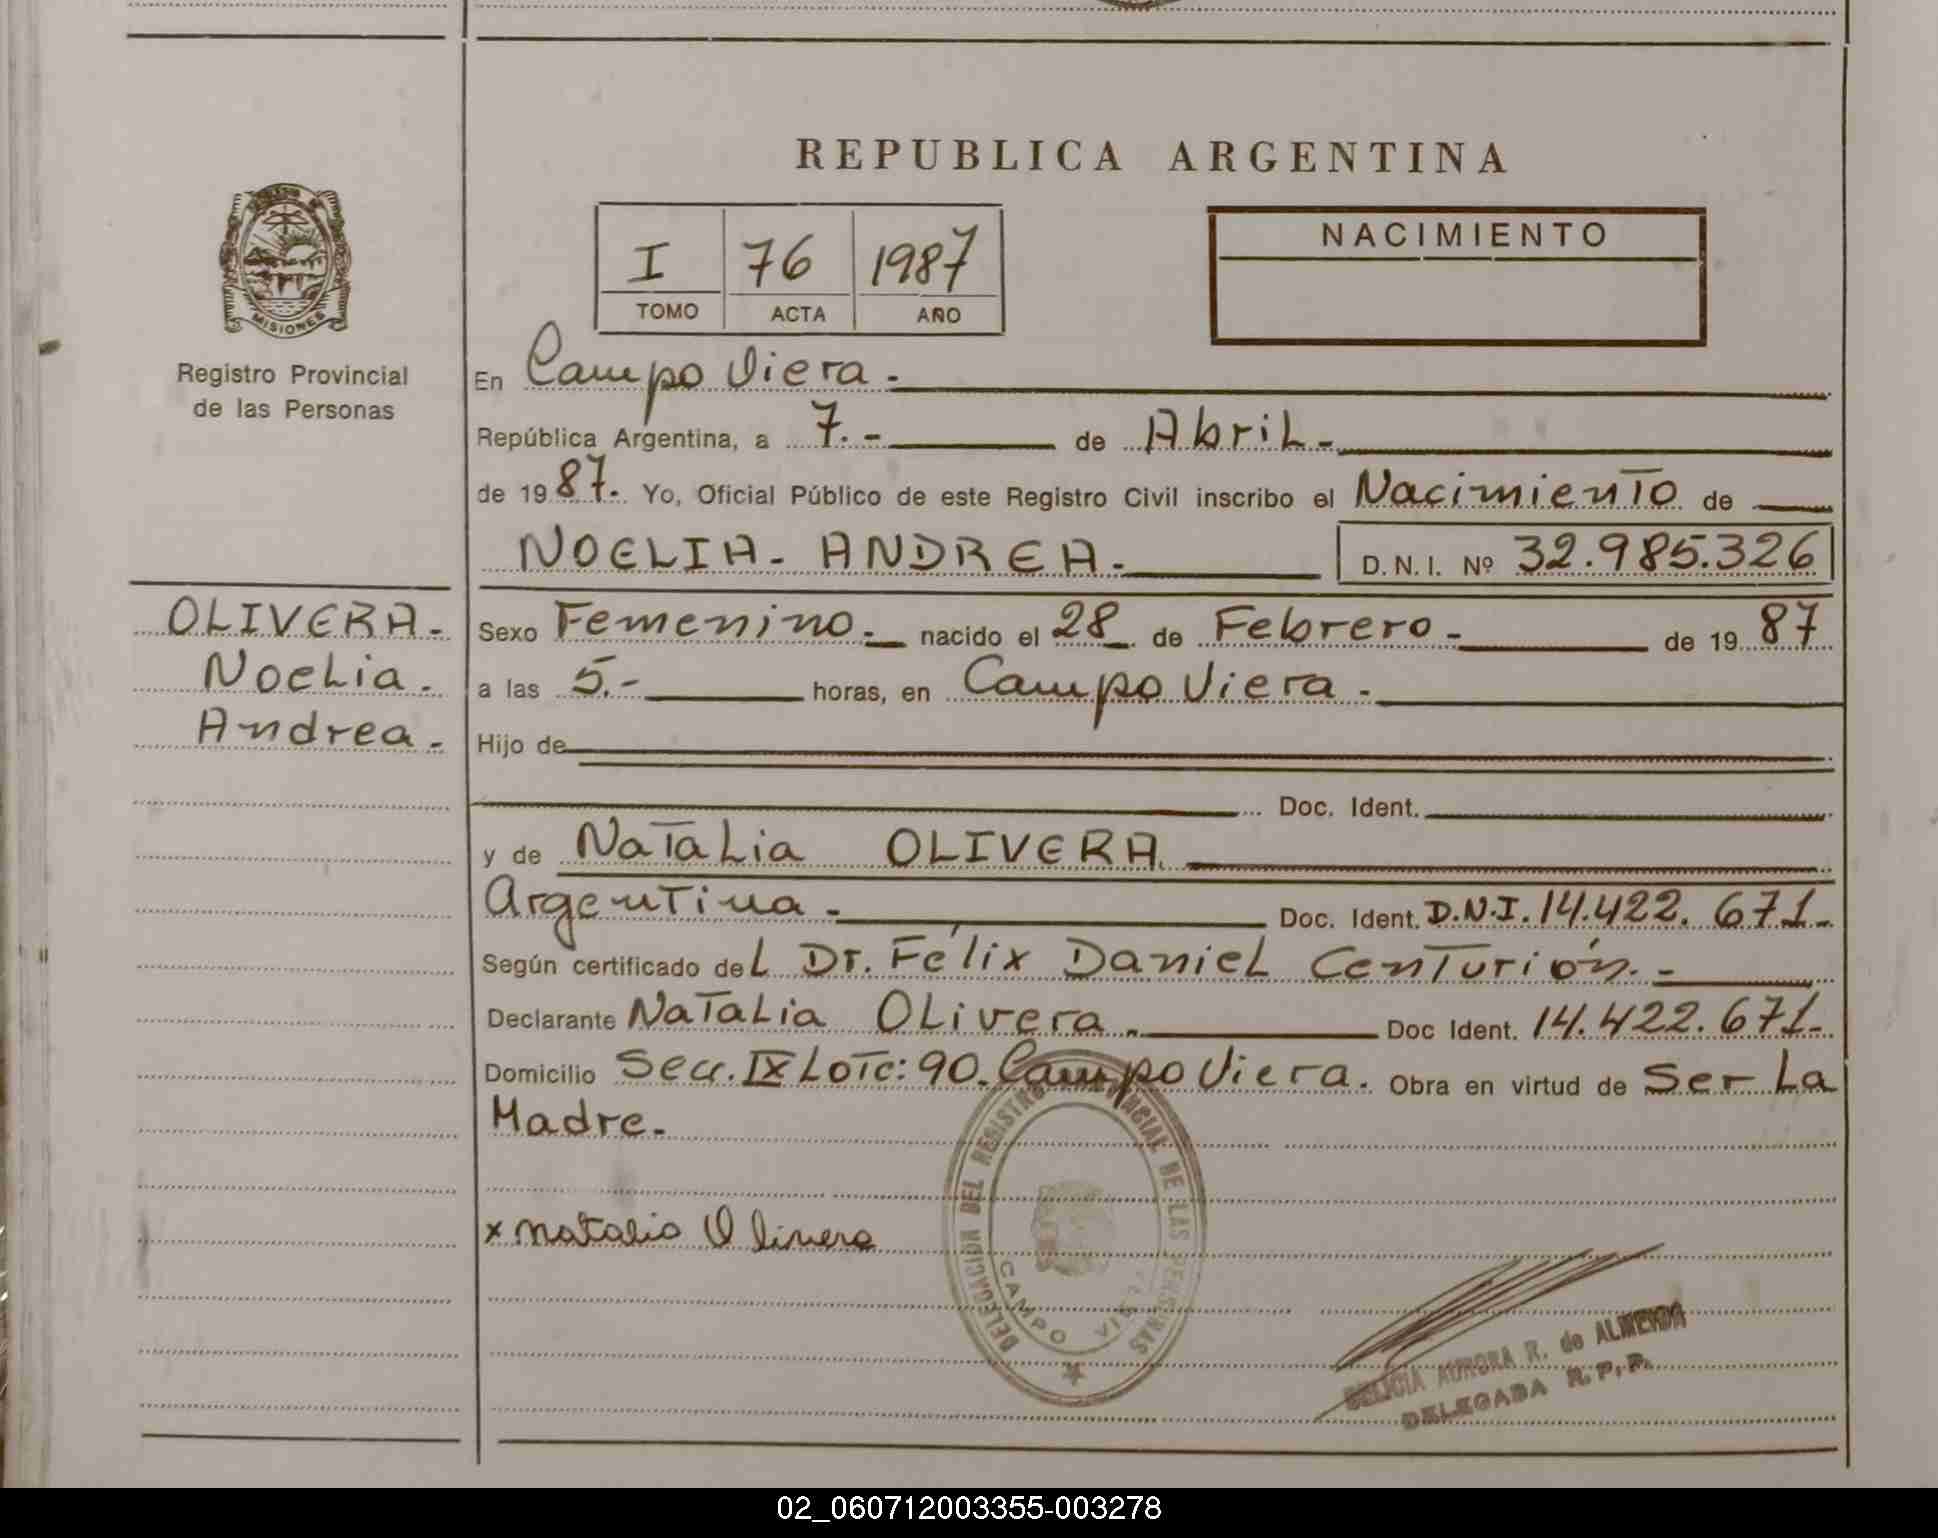 REPUBLICA ARGENTINA
I 76 1987
TOMO ACTA AÑO
NACIMIENTO
MISIONES
Registro Provincial
de las Personas
En Campo Viera.-
República Argentina, a 7.- de Abril.-
de 1987.- Yo, Oficial Público de este Registro Civil inscribo el Nacimiento de
NOELIA- ANDREA.- D.N.I. Nº 32.985.326
OLIVERA.-
Noelia.
Andrea.-
Sexo Femenino.- nacido el 28 de Febrero.- de 1987
a las 5.- horas, en Campo Viera.-
Hijo de
Doc. Ident.
y de Natalia OLIVERA.
Argentina.- Doc. Ident. D.N.I. 14.422.671.-
Según certificado del Dr. Félix Daniel Centurión.-
Declarante Natalia Olivera.- Doc Ident. 14.422.671.-
Domicilio Secc. IX Lote: 90. Campo Viera. Obra en virtud de Ser La
Madre.-
x Natalia Olivera
DELEGACION DEL REGISTRO PROVINCIAL DE LAS PERSONAS
CAMPO VIERA
DELICIA AURORA R. de ALMEIDA
DELEGADA R.P.P.
02_060712003355-003278